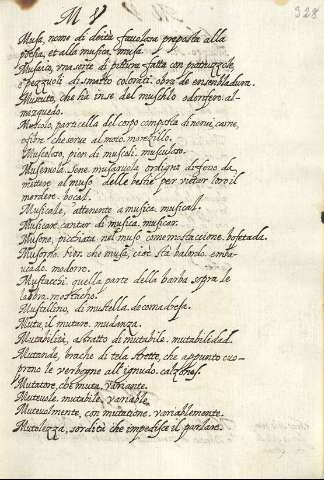 M V
328
Musa, nome di deità favolosa preposta alla
poesia, et alla musica. musa.
Musaico, una sorte di pittura fatta con pietruzzole,
e pezzuoli di smalto coloriti. obra de ensembladura.
Muscato, che hà in se del muschio odorifero. al-
mezquedo.
Muscolo, particella del corpo composta di nervi, carne,
e fibre che serve al moto. morezillo.
Muscoloso, pien di muscoli. musculoso.
Museruola. Sene. musaruola ordigno di ferro da
mettere al muso delle bestie per vietar loro il
mordere. bocal.
Musicale, attenente a musica. musical.
Musicare, cantar di musica. musicar.
Musone, picchiata nel muso come mostaccione. bofetada.
Musorno. huom che musa, cioè stà balordo. emba-
ucado. modorro.
Mustacchi, quella parte della barba sopra le
labbra. mostacho.
Mustellino, di mustella. de comadreja.
Muta, il mutare. mudanza.
Mutabilità, astratto di mutabile. mutabilidad.
Mutande, brache di tela strette, che appunto cuo-
prono le vergogne all'ignudo. calzones.
Mutatore, che muta. variante.
Mutevole, mutabile. variable.
Mutevolmente, con mutatione. variablemente.
Mutolezza, sordità che impedisce il parlare.